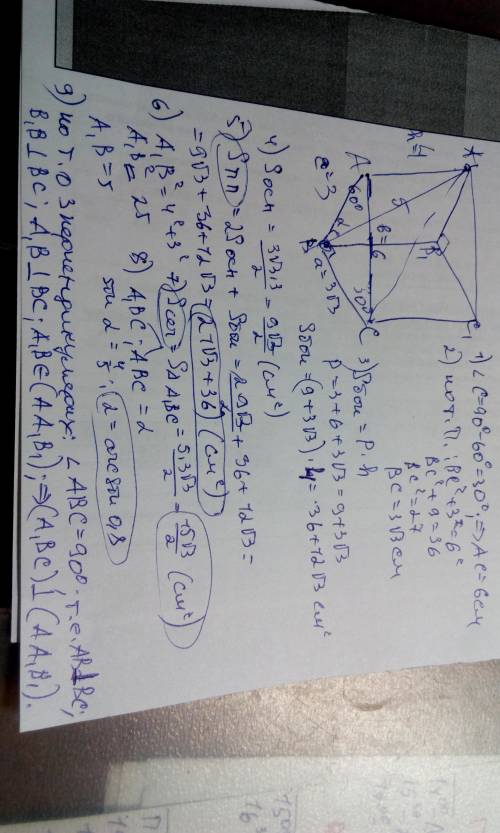 A₁
C₁
B₁
h=4
5
A
60°
b=6
30°
C
a=3
α
B
a=3√3
1) ∠C=90°-60°=30°, ⇒ AC=6см
2) по т. П.: BC²+3²=6²
BC²+9=36
BC²=27
BC=3√3 см
3) Sбок=P·h
P=3+6+3√3=9+3√3
Sбок=(9+3√3)·4=36+12√3 см²
4) Sосн=3√3·3/2=9√3/2 (см²)
5) Sпп=2Sосн+Sбок=2·9√3/2+36+12√3=
=9√3+36+12√3=(21√3+36) (см²)
6) A₁B²=4²+3²
A₁B²=25
A₁B=5
7) Sсеч=S∆A₁BC=5·3√3/2=15√3/2 (см²)
8) A₁BC; ABC=α
sin α=4/5; α=arcsin 0,8
9) по т. о 3 перпендикулярах: ∠ABC=90° т.е. AB⊥BC;
B₁B⊥BC; A₁B⊥BC; A₁B∈(AA₁B₁); ⇒(A₁BC)⊥(AA₁B₁).